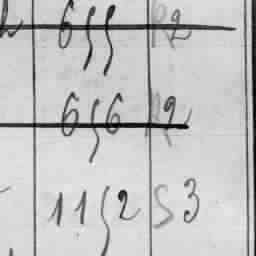 655 R2
656 R2
1152 S3